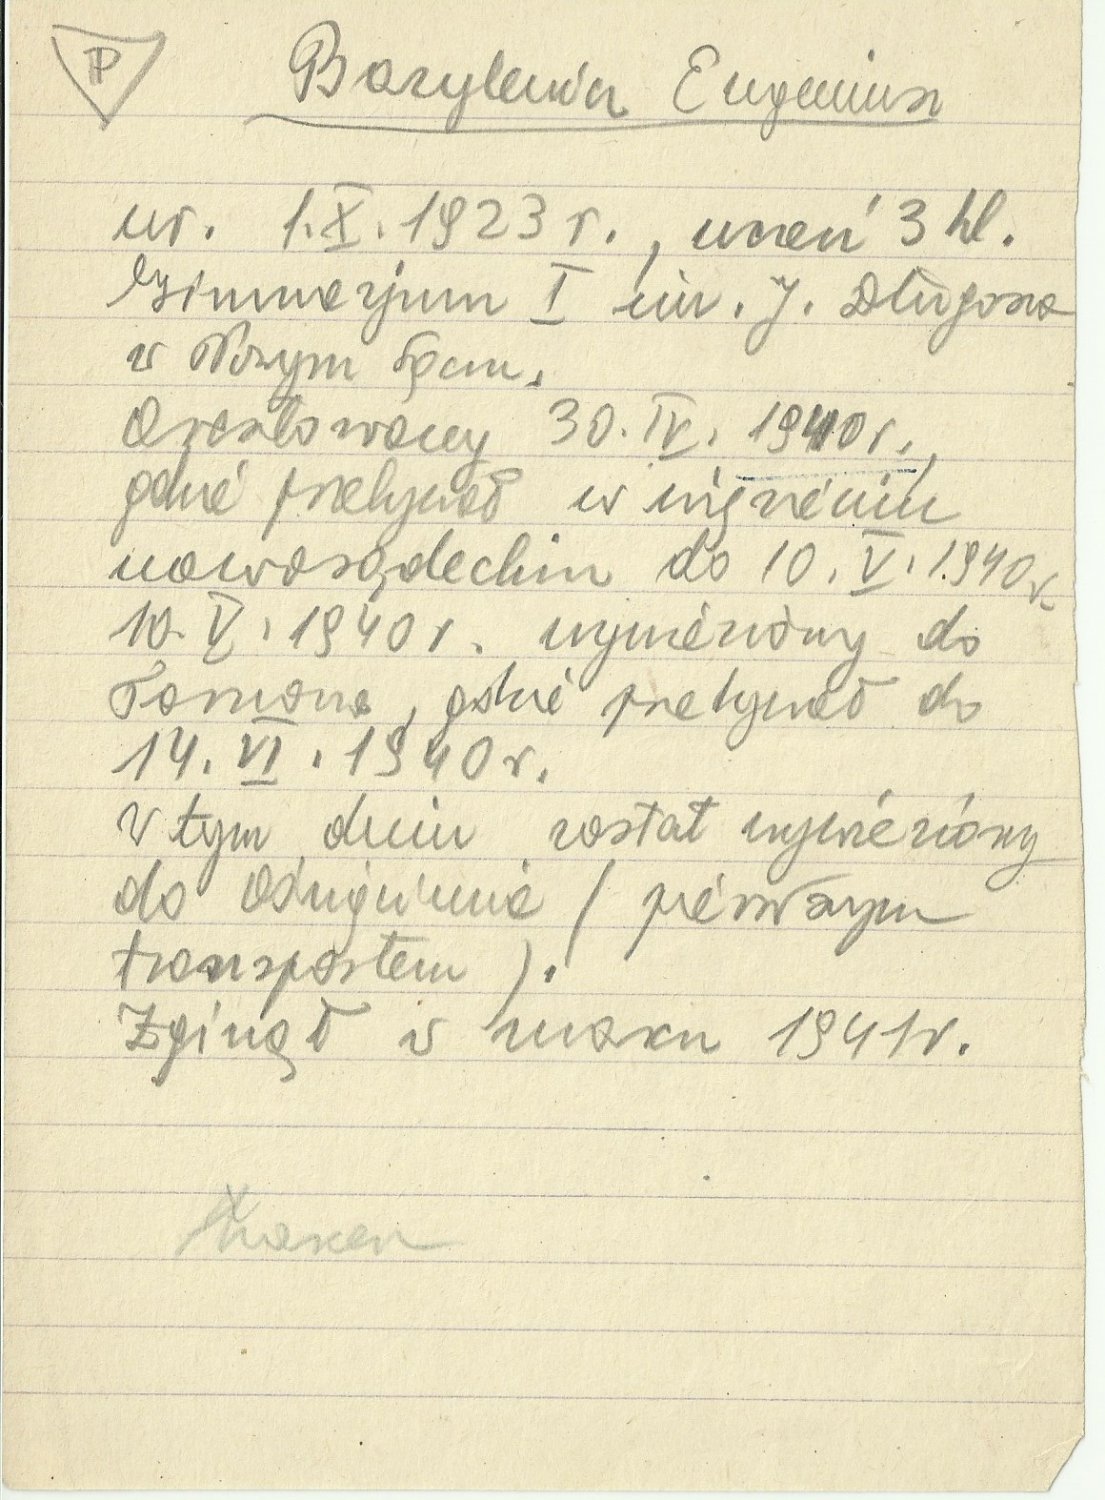 P
Bazylewicz Eugeniusz
ur. 1.X.1923 r., uczeń 3 kl.
Gimnazjum I im. J. Długosza
w Nowym Sączu.
Aresztowany 30.IV.1940 r.,
gdzie przebywał w więzieniu
nowosądeckim do 10.V.1940 r.
10.V.1940 r. wywieziony do
Tarnowa, gdzie przebywał do
14.VI.1940 r.
W tym dniu został wywieziony
do Oświęcimia (pierwszym
transportem).
Zginął w marcu 1941 r.